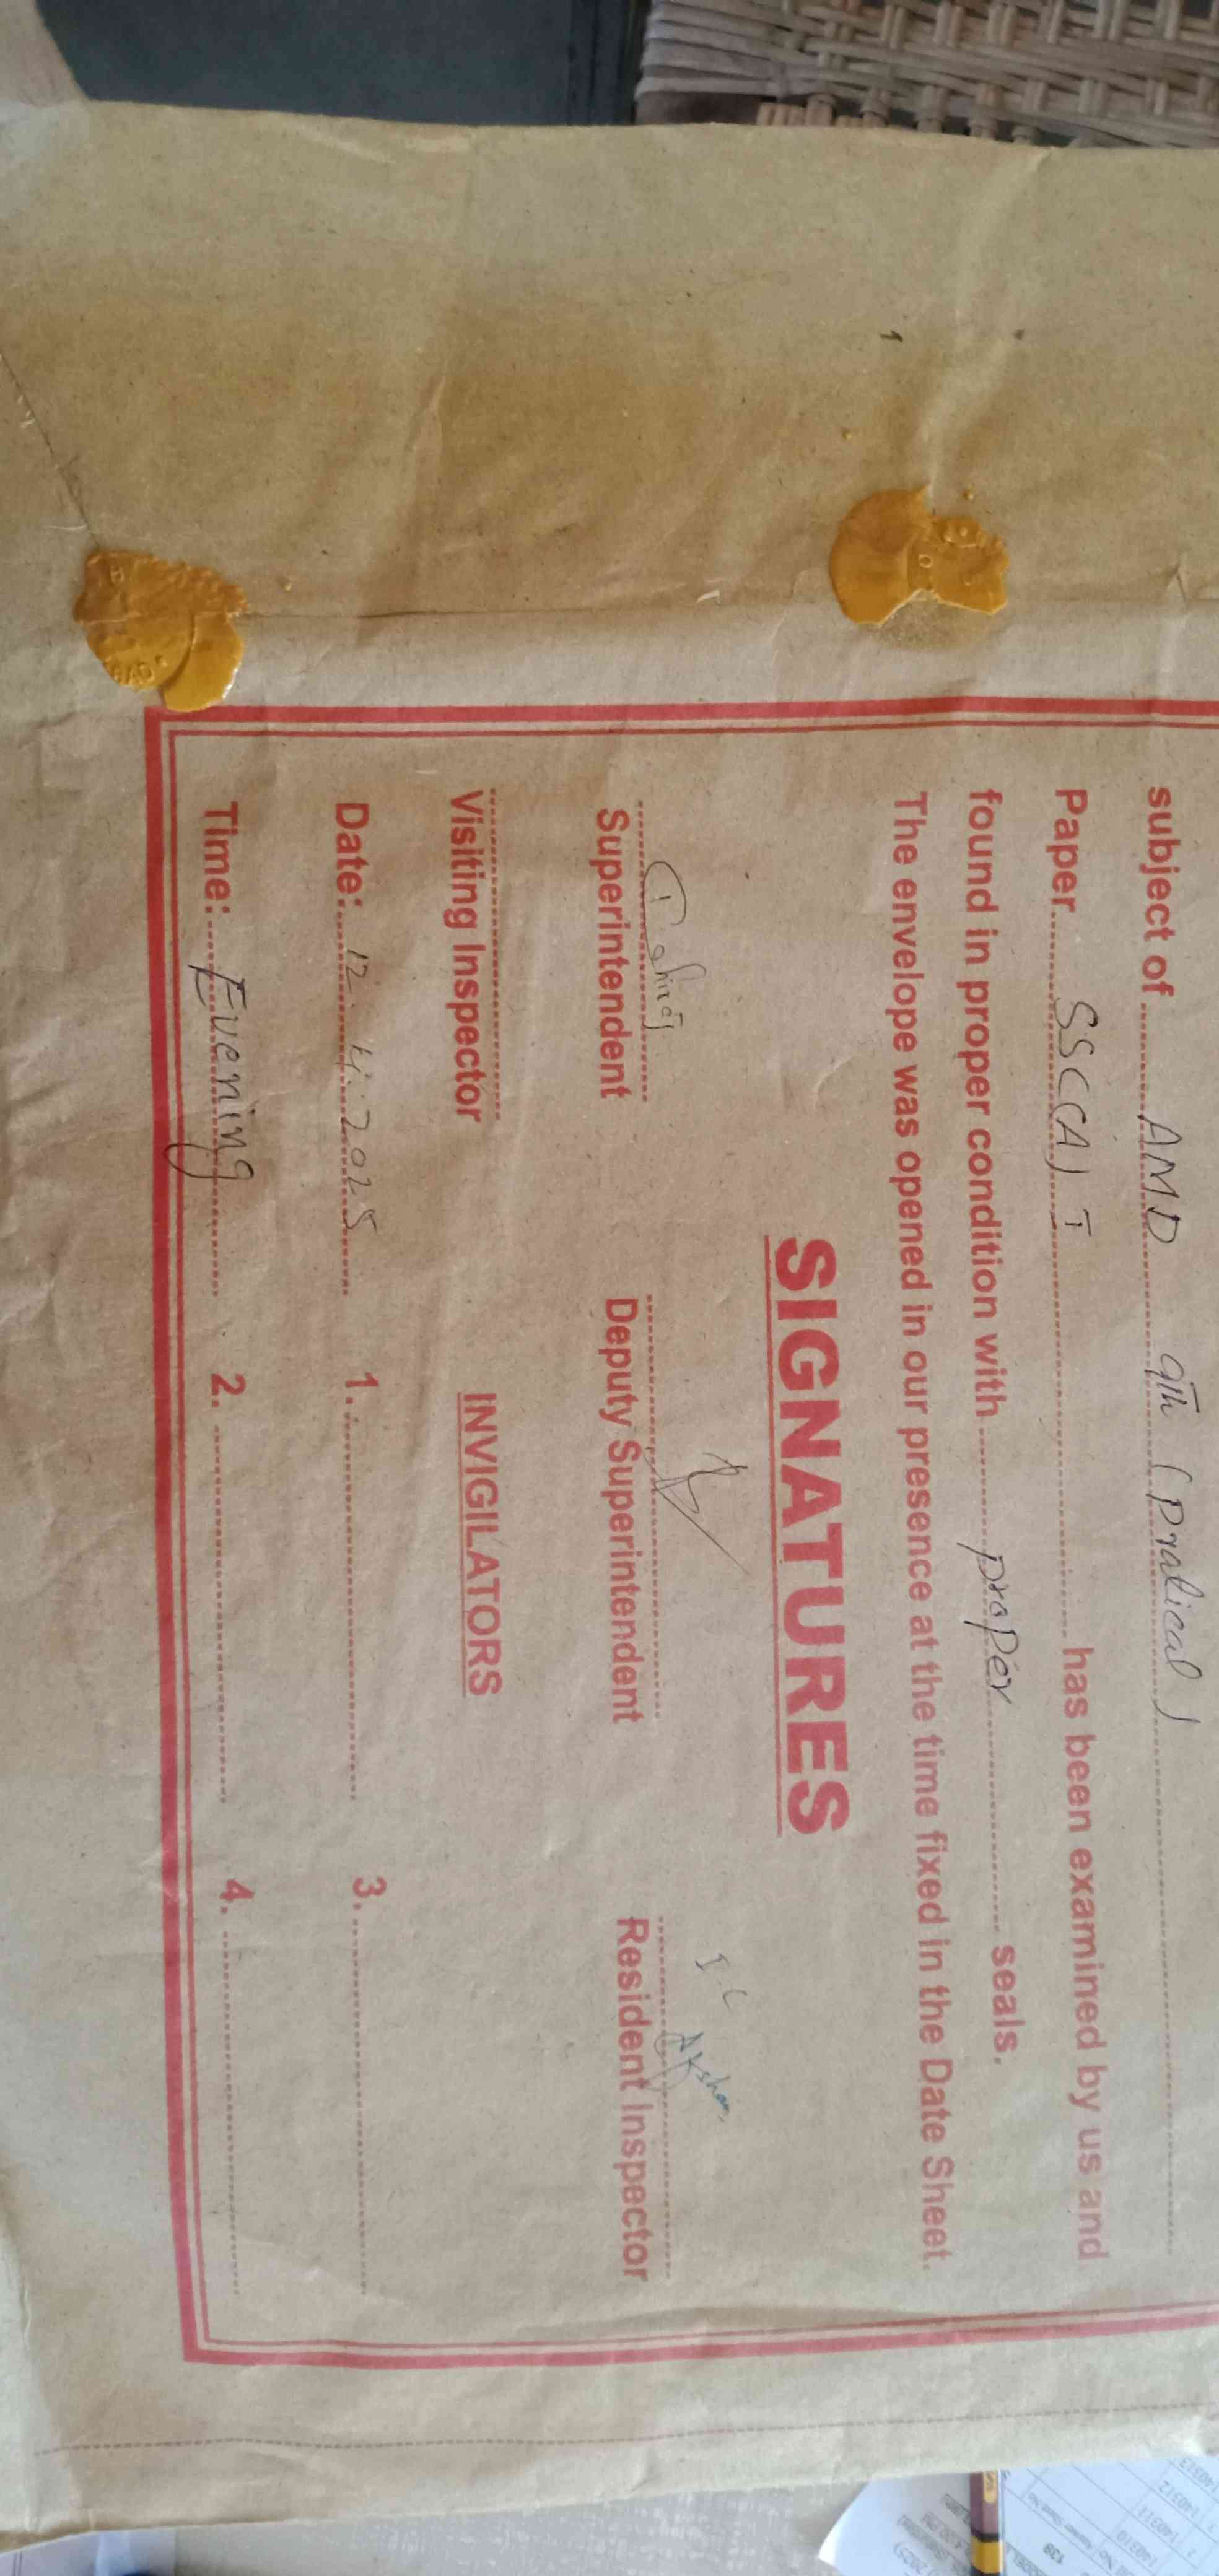 subject of AMD 9th (Pratical)
Paper SSC(A) I has been examined by us and
found in proper condition with proper seals.
The envelope was opened in our presence at the time fixed in the Date Sheet.
SIGNATURES
Superintendent Deputy Superintendent Resident Inspector
Visiting Inspector INVIGILATORS
Date: 12.4.2025 1. 3.
Time: Evening 2. 4.